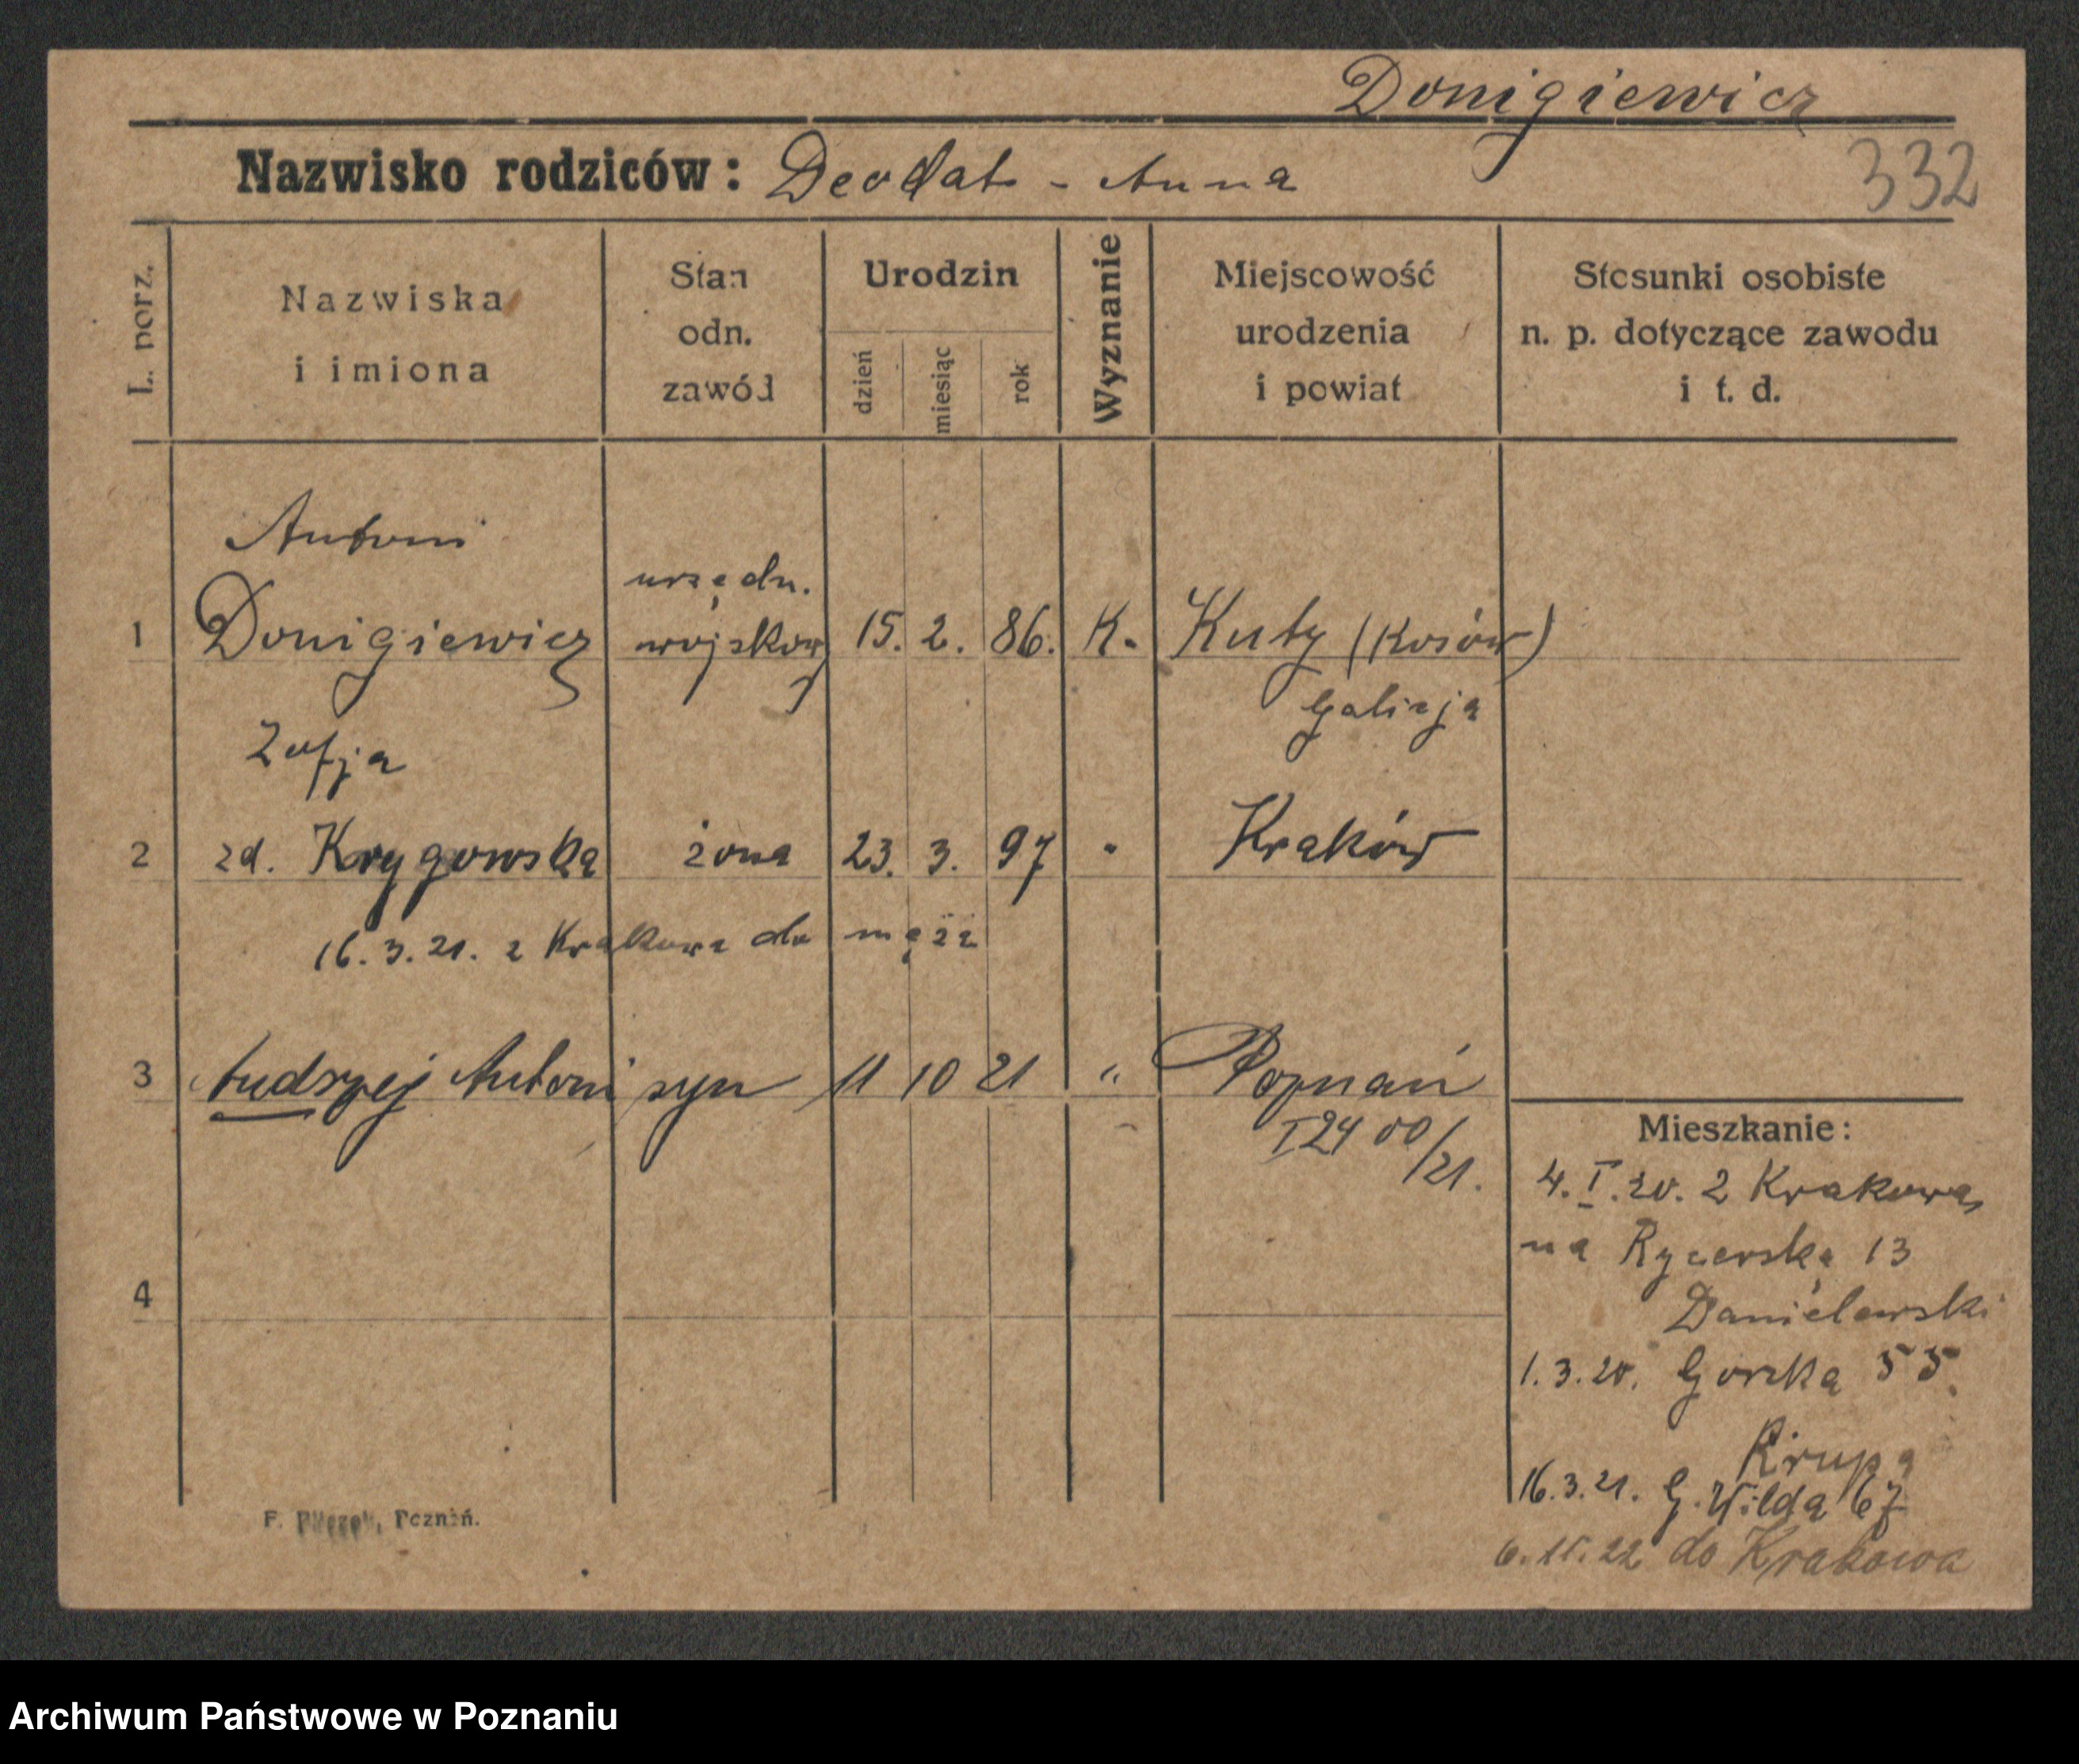 Donigiewicz
Nazwisko rodziców: Deodat - Anna
332
L. porz.
Nazwiska
i imiona
Stan
odn.
zawód
Urodzin
dzień
miesiąc
rok
Wyznanie
Miejscowość
urodzenia
i powiat
Stosunki osobiste
n. p. dotyczące zawodu
i t. d.
Antoni
urzędn.
1 Donigiewicz wojskowy 15. 2. 86. K. Kuty (Kosów)
Galicja
Zofja
2 zd. Krygowska żona 23. 3. 97 " Kraków
16.3.21. z Krakowa do męża
3 Andrzej Antoni syn 11 10 21 " Poznań
I 24 00/21.
4
Mieszkanie:
4. I. 20. z Krakowa
na Rycerską 13
Danielewski
1.3.20. Górka 55
Krupa
16.3.21. G. Wilda 67
6.11.22 do Krakowa
F. Poznań.
Archiwum Państwowe w Poznaniu